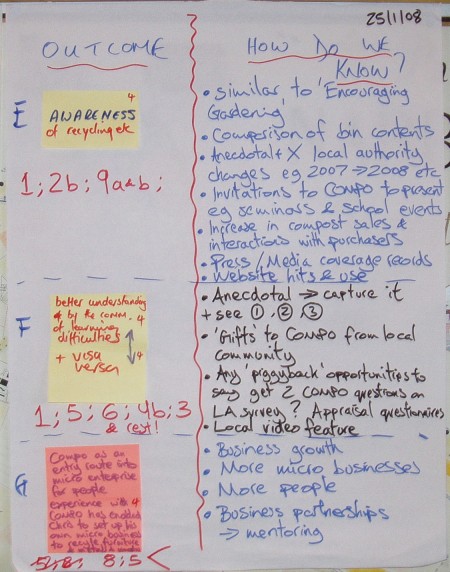 25/1/08
OUTCOME
HOW DO WE
KNOW?
E
4
AWARENESS
of recycling etc
1; 2b; 9a&b;
• Similar to 'Encouraging
Gardening'
• Comparison of bin contents
• Anecdotal + X local authority
changes eg 2007 → 2008 etc
• Invitations to COMPO to present
eg seminars & school events
• Increase in compost sales &
interactions with purchasers
• Press/Media coverage records
• Website hits & use
F
better understanding
by the comm. 4
of learning
difficulties
+ visa
versa
4
1; 5; 6; 4b; 3
& rest!
• Anecdotal → capture it
+ see ①, ②, ③
• 'Gifts' to COMPO from local
community
• Any 'piggyback' opportunities to
say get 2 COMPO questions on
LA survey? Appraisal questionnaires
• Local video feature
G
Compo as an
entry route into
micro enterprise
for people
experience with 4
compo has enabled
Chris to set up his
own micro business
to recycle furniture
8; 5 <
• Business growth
• More micro businesses
• More people
• Business partnerships
→ mentoring